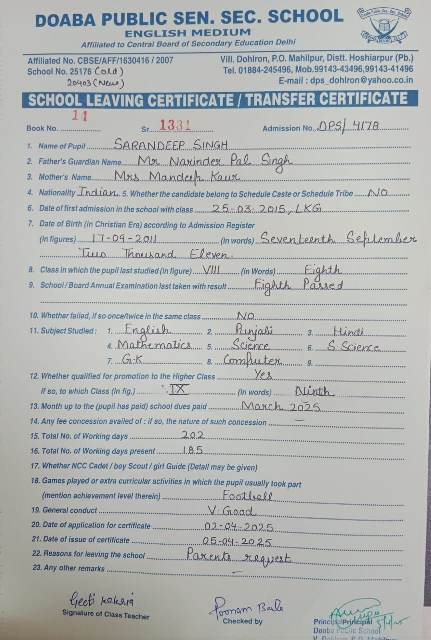 DOABA PUBLIC SEN. SEC. SCHOOL
ENGLISH MEDIUM
Affiliated to Central Board of Secondary Education Delhi
Affiliated No. CBSE/AFF/1630416 / 2007
School No. 25176 (old)
20403 (New)
Vill. Dohlron, P.O. Mahilpur, Distt. Hoshiarpur (Pb.)
Tel. 01884-245496, Mob.99143-43496,99143-41496
E-mail : dps_dohlron@yahoo.co.in
SCHOOL LEAVING CERTIFICATE / TRANSFER CERTIFICATE
Book No. 14 Sr. 1331 Admission No. DPS/4178
1. Name of Pupil SARANDEEP SINGH
2. Father's Guardian Name Mr Narinder Pal Singh
3. Mother's Name Mrs Mandeep Kaur
4. Nationality Indian 5. Whether the candidate belong to Schedule Caste or Schedule Tribe NO
6. Date of first admission in the school with class 25-03-2015, LKG
7. Date of Birth (in Christian Era) according to Admission Register
(in figures) 17-09-2011 (in words) Seventeenth September
Two Thousand Eleven
8. Class in which the pupil last studied (in figure) VIII (in Words) Eighth
9. School / Board Annual Examination last taken with result Eighth Passed
10. Whether failed, if so once/twice in the same class NO
11. Subject Studied : 1. English 2. Punjabi 3. Hindi
4. Mathematics 5. Science 6. S.Science
7. G.K 8. Computer 9.
12. Whether qualified for promotion to the Higher Class Yes
if so, to which Class (in fig.) IX (in words) Ninth
13. Month up to the (pupil has paid) school dues paid March 2025
14. Any fee concession availed of : if so, the nature of such concession —
15. Total No. of Working days 202
16. Total No. of Working days present 185
17. Whether NCC Cadet / boy Scout / girl Guide (Detail may be given)
18. Games played or extra curricular activities in which the pupil usually took part
(mention achievement level therein) Football
19. General conduct V.Good
20. Date of application for certificate 02-04-2025
21. Date of issue of certificate 05-04-2025
22. Reasons for leaving the school Parents request
23. Any other remarks —
Signature of Class Teacher
Poonam Bala
Checked by
Principal
Principal
Doaba Public School